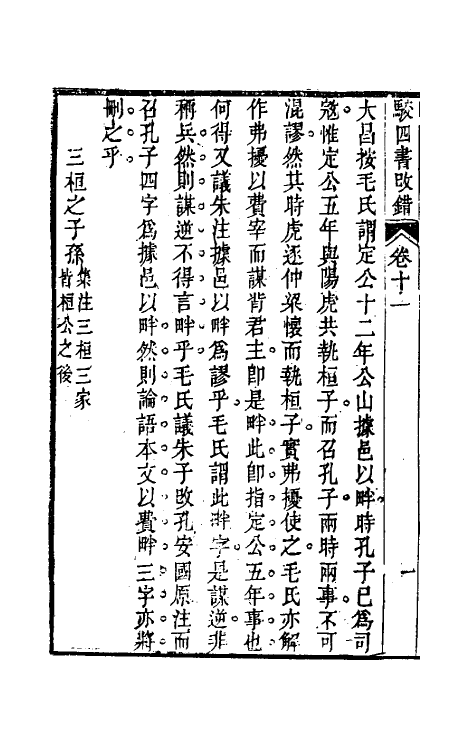 駁四書改錯
卷十一
一
大昌按毛氏謂定公十二年公山據邑以畔時孔子已爲司
寇惟定公五年與陽虎共執桓子而召孔子兩時兩事不可
混謬然其時虎逐仲梁懷而執桓子實弗擾使之毛氏亦解
作弗擾以費宰而謀背君主卽是畔此卽指定公五年事也
何得又議朱注據邑以畔爲謬乎毛氏謂此畔字是謀逆非
稱兵然則謀逆不得言畔乎毛氏議朱子改孔安國原注而
召孔子四字爲據邑以畔然則論語本文以費畔三字亦將
刪之乎
三桓之子孫集注三桓三家
皆桓公之後